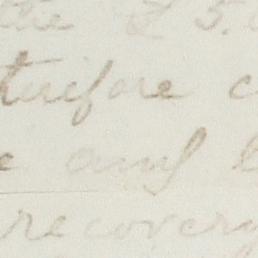 the £ 5.
turifore c
e and l
recovery